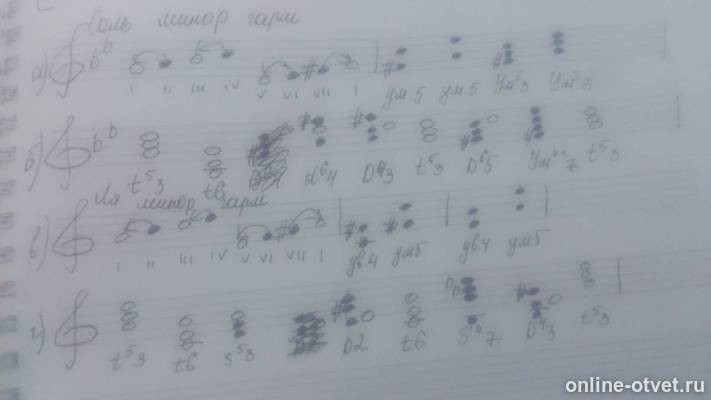 Соль минор гарм
а) I II III IV V VI VII I ум 5 ум 5 Ум5/3 Ум5/3
б) t5/3 t6 D6/4 D4/3 t5/3 D6/5 t5/3
Ля минор гарм
в) I II III IV V VI VII I ув.4 ум5 ув4 ум5
г) t5/3 t6 s5/3 D2 t6 D4/3 t5/3
online-otvet.ru